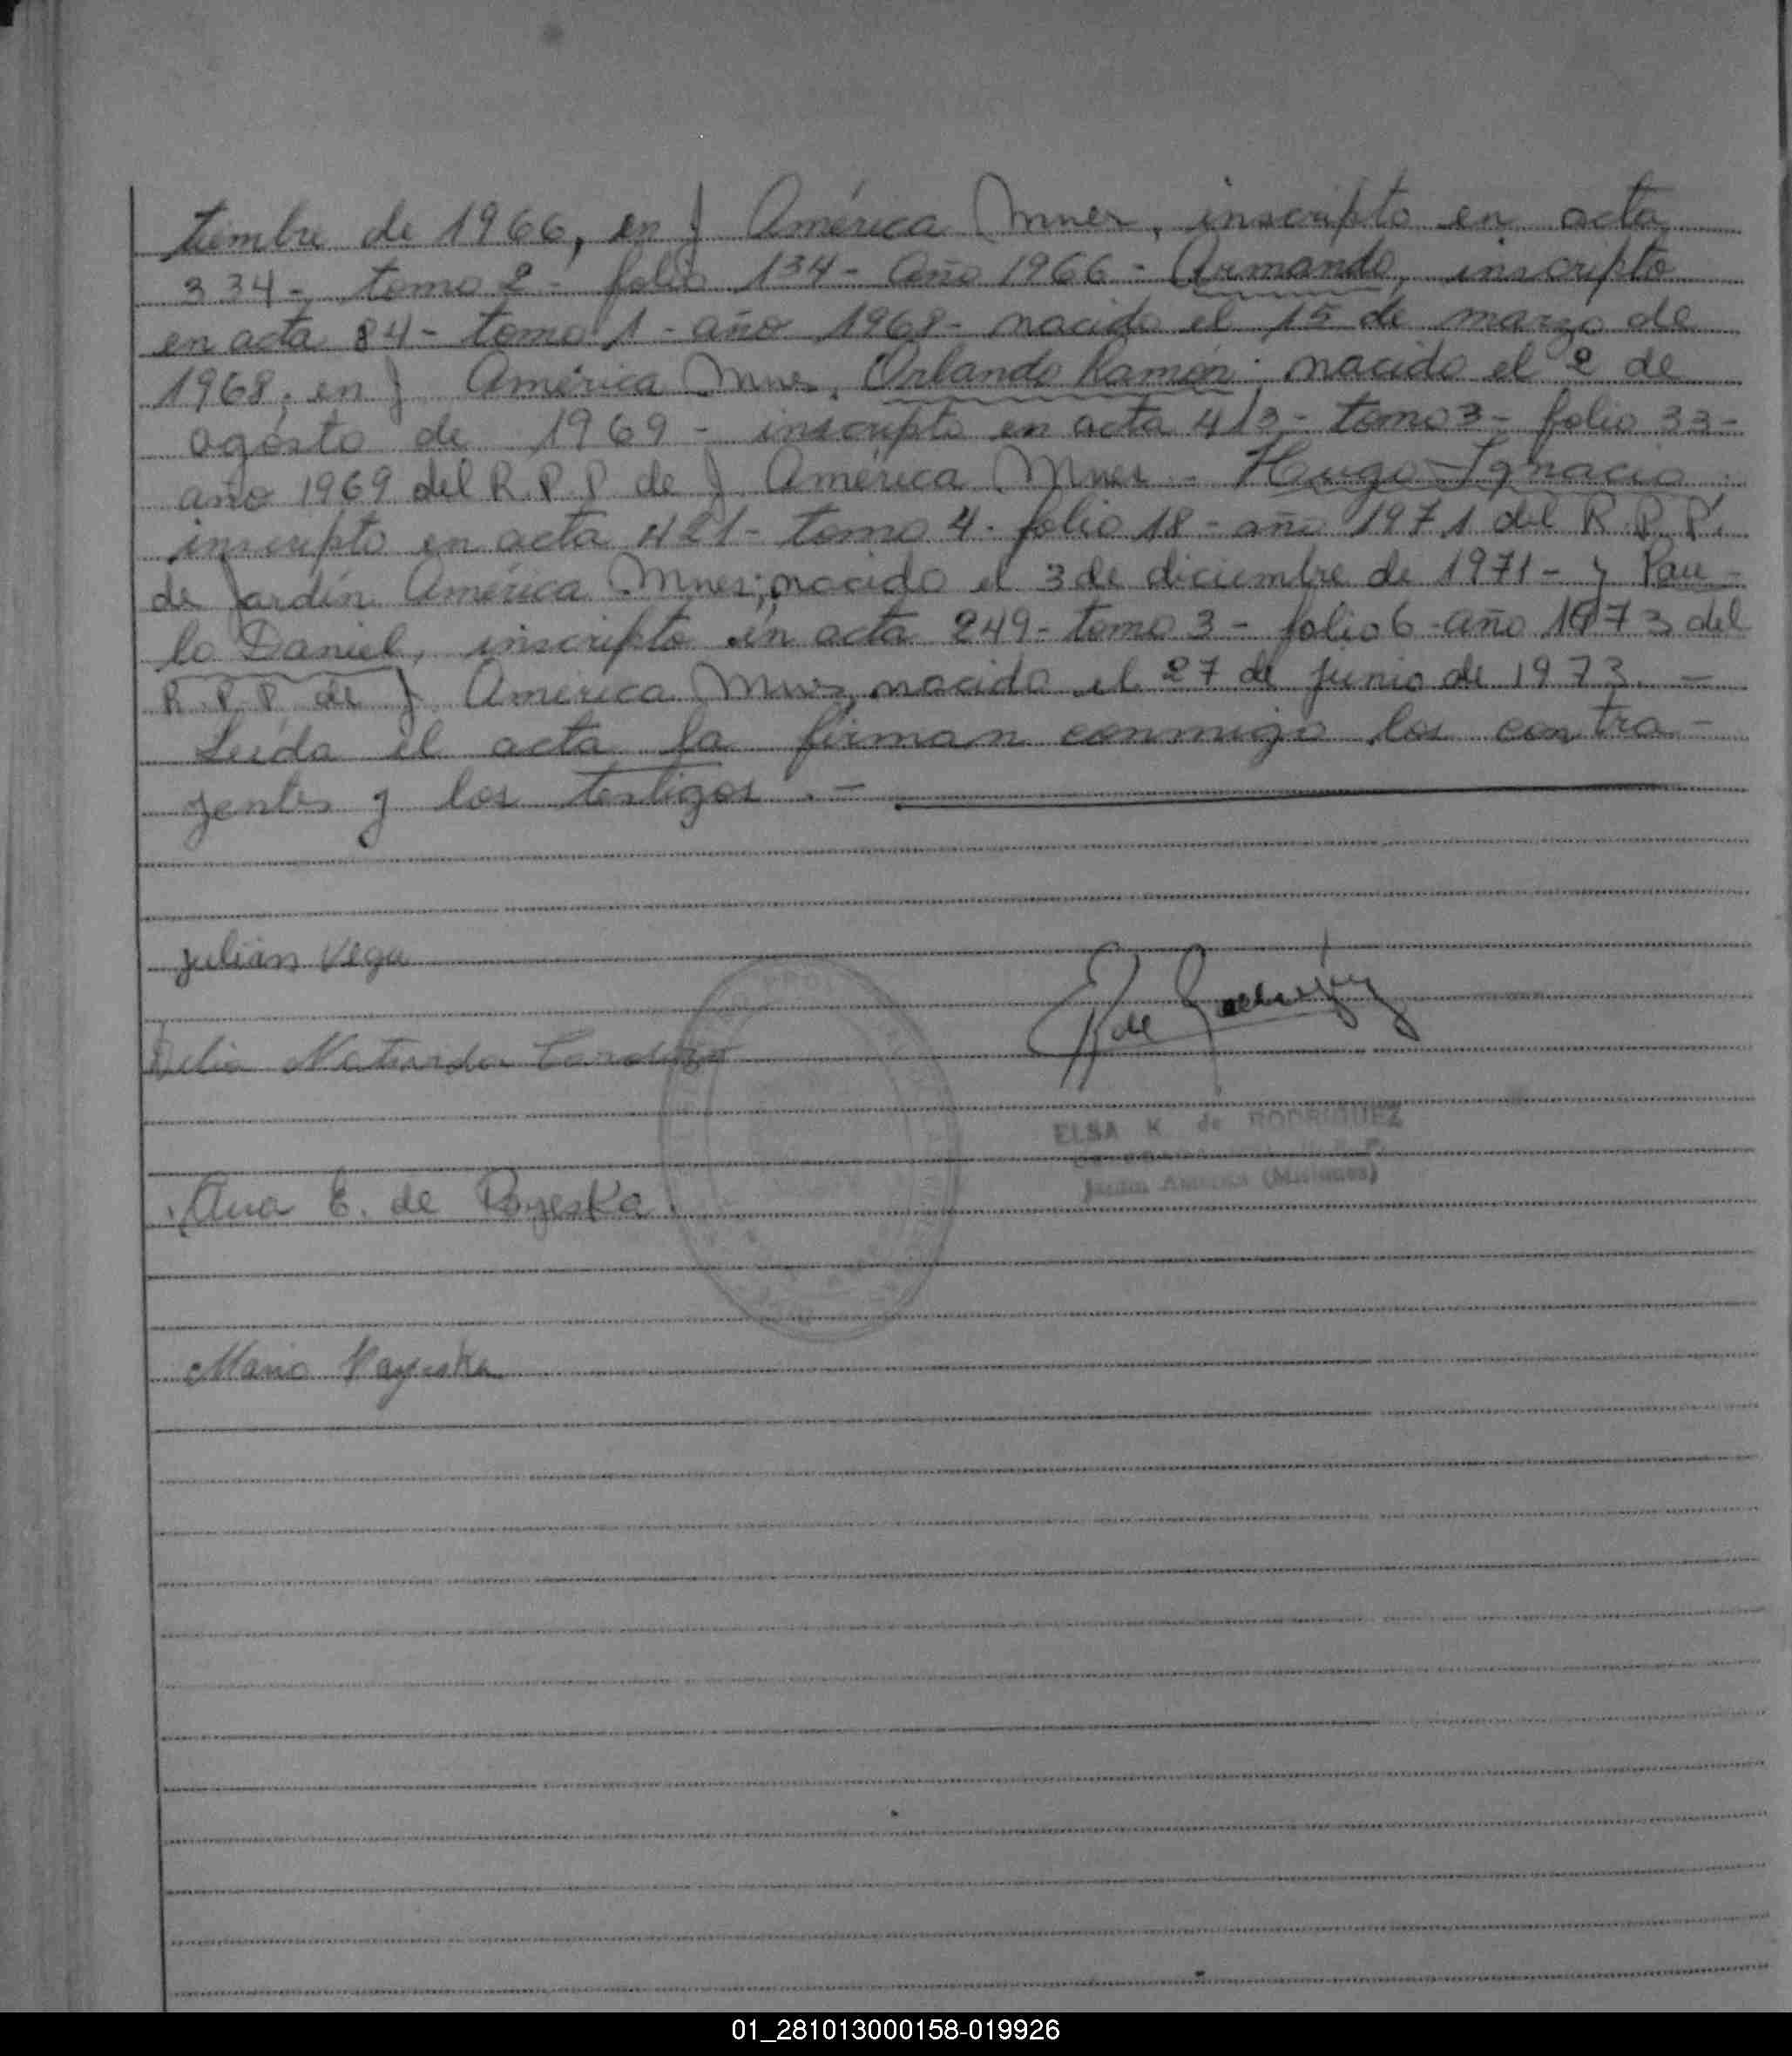 tiembre de 1966, en J América Mnes, inscripto en acta
334- tomo 2- folio 134- año 1966- Armando, inscripto
en acta 84- tomo 1- año 1968- nacido el 15 de marzo de
1968, en J América Mnes, Orlando Ramón; nacido el 2 de
agosto de 1969- inscripto en acta 413- tomo 3- folio 33-
año 1969 del R.P.P de J. América Mnes- Hugo Ignacio
inscripto en acta 421- tomo 4- folio 18- año 1971 del R.P.P.
de Jardín América Mnes; nacido el 3 de diciembre de 1971- y Pau-
lo Daniel, inscripto en acta 249- tomo 3- folio 6- año 1973 del
R.P.P. de J. América Mnes, nacido el 27 de junio de 1973.-
Leída el acta la firman conmigo los contra-
yentes y los testigos.-
Julian Vega
Delia
Ana E. de Payeska
ELSA K de RODRIGUEZ
Jardin America (Misiones)
Mario Payeska
01_281013000158-019926